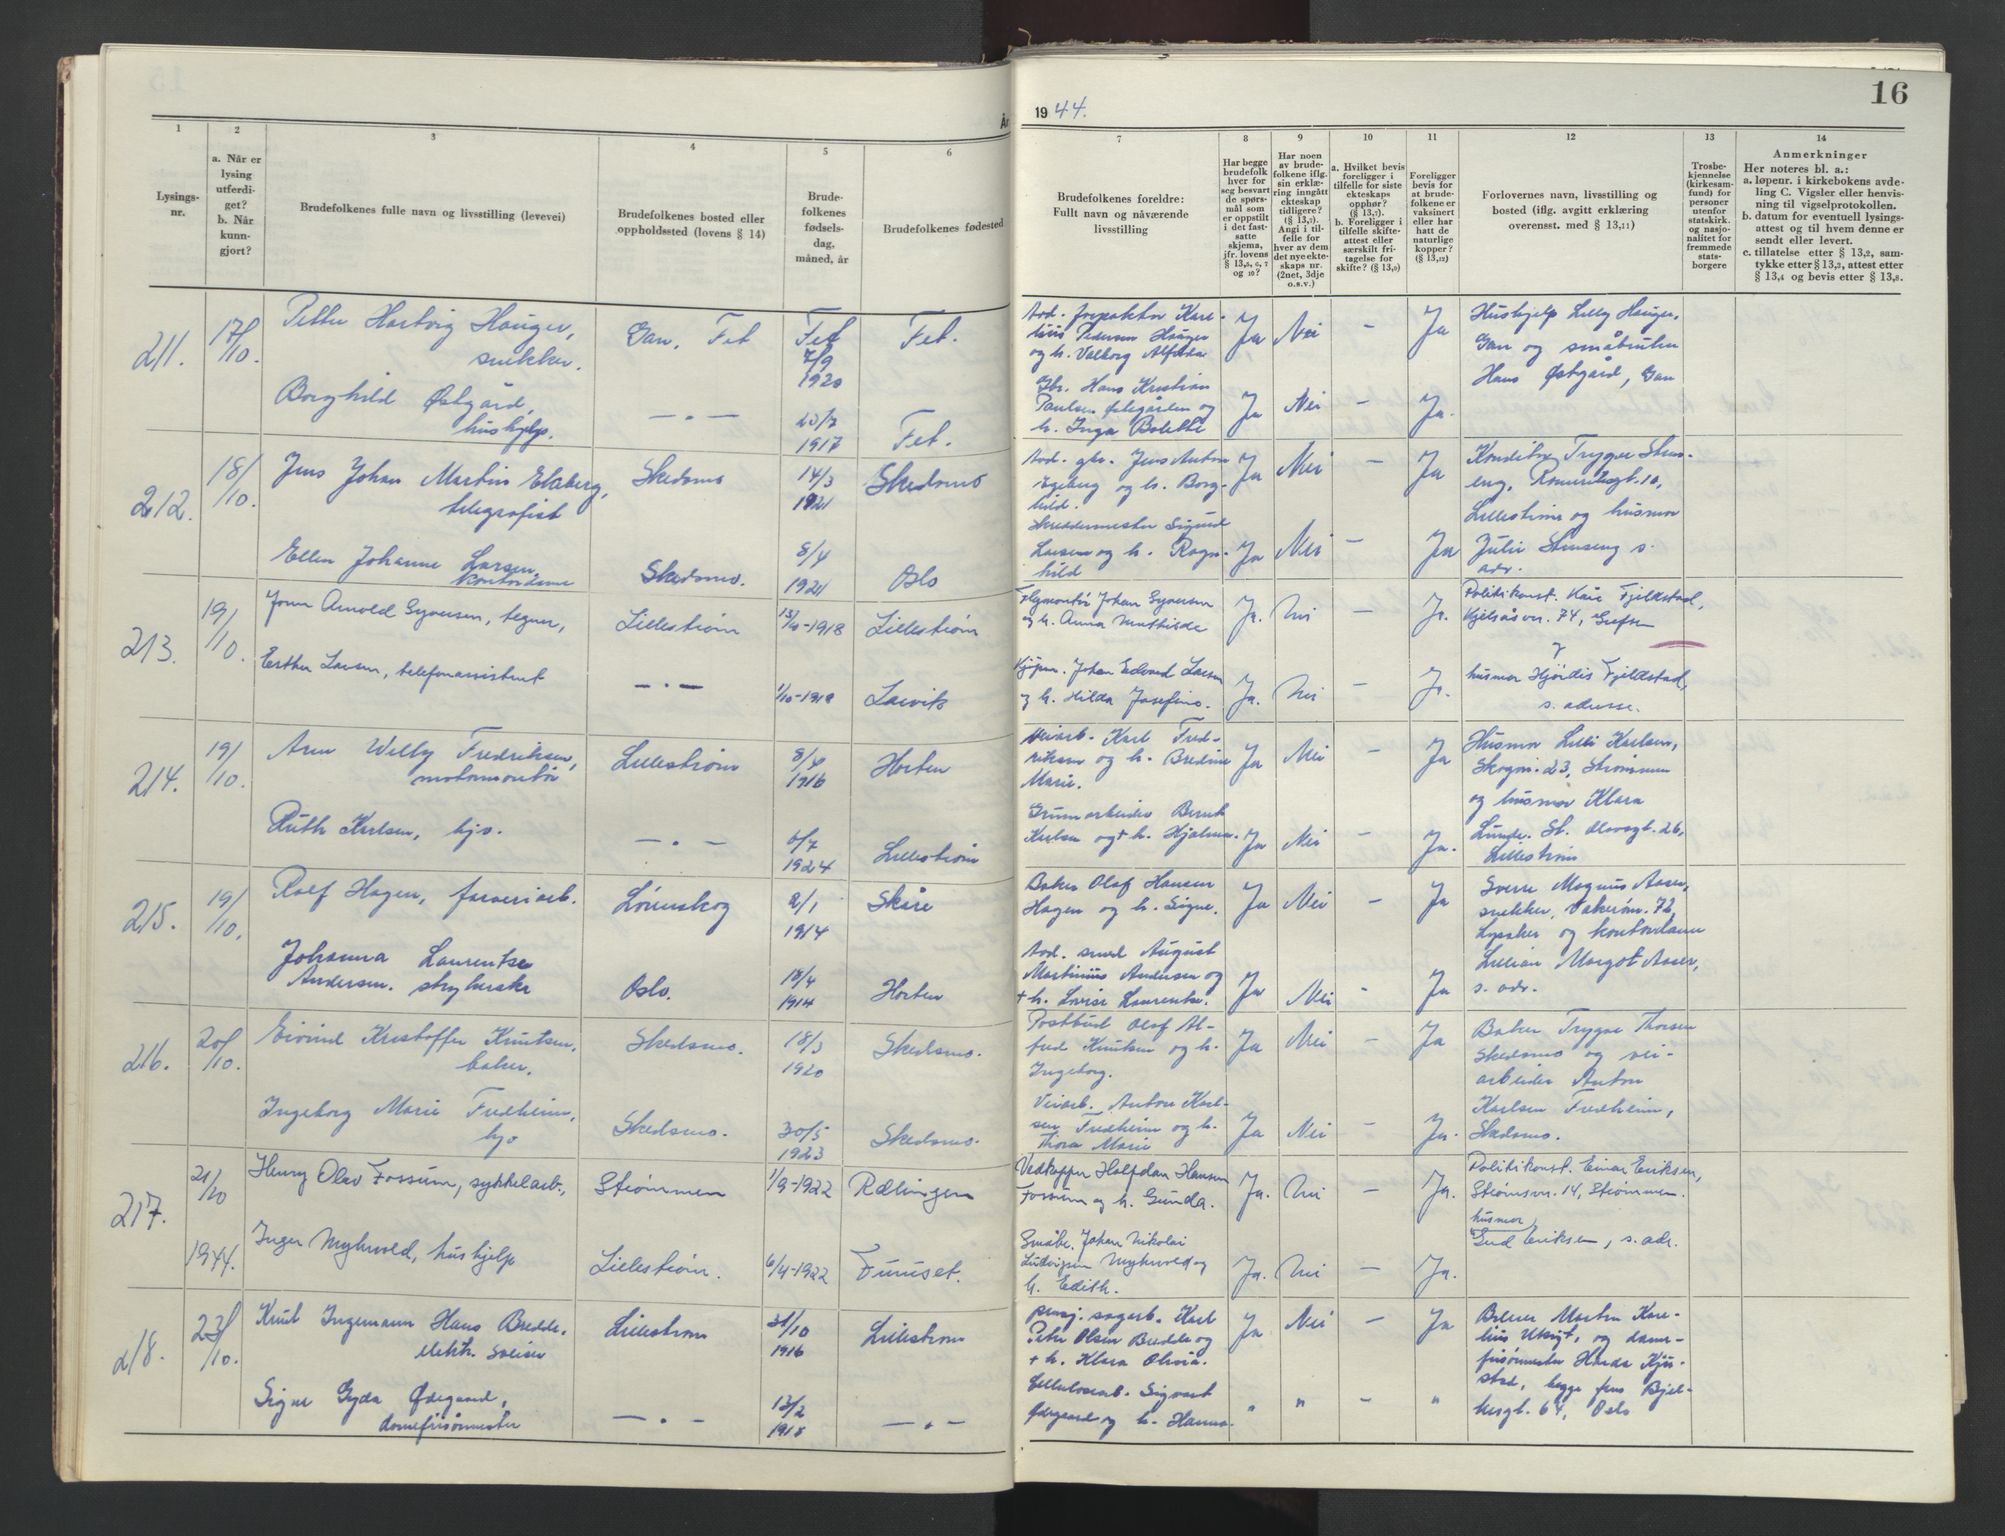 År 1944.
16
1
2
3
4
5
6
7
8
9
10
11
12
13
14
Lysings-
nr.
a. Når er
lysing
utferdi-
get?
b. Når
kunn-
gjort?
Brudefolkenes fulle navn og livsstilling (levevei)
Brudefolkenes bosted eller
oppholdssted (lovens § 14)
Brude-
folkenes
fødsels-
dag,
måned, år
Brudefolkenes fødested
Brudefolkenes foreldre:
Fullt navn og nåværende
livsstilling
Har begge
brudefolk
hver for
seg besvart
de spørs-
mål som
er oppstilt
i det fast-
satte
skjema,
jfr. lovens
§ 13,5, 6, 7
og 10?
Har noen
av brude-
folkene iflg.
sin erklæ-
ring inngått
ekteskap
tidligere?
(§ 13,7).
Angi i til-
felle for
hver av dem
det nye ekte-
skaps nr.
(2net, 3dje
o.s.v.)
a. Hvilket bevis
foreligger i
tilfelle for siste
ekteskaps
opphør?
(§ 13,7).
b. Foreligger i
tilfelle skifte-
attest eller
særskilt fri-
tagelse for
skifte? (§ 13,9)
Foreligger
bevis for
at brude-
folkene er
vaksinert
eller har
hatt de
naturlige
kopper?
(§ 13,12)
Forlovernes navn, livsstilling og
bosted (iflg. avgitt erklæring
overensst. med § 13,11)
Trosbe-
kjennelse
(kirkesam-
fund) for
personer
utenfor
statskirk.
og nasjo-
nalitet for
fremmede
stats-
borgere
Anmerkninger
Her noteres bl. a.:
a. løpenr. i kirkebokens avde-
ling C. Vigsler eller henvis-
ning til vigselprotokollen.
b. datum for eventuell lysings-
attest og til hvem denne er
sendt eller levert.
c. tillatelse etter § 13,2, sam-
tykke etter § 13,3, attest etter
§ 13,4 og bevis etter § 13,8.
211. 17/10. Petter Hartvig Hauger, Gan, Fet Fet Fet.
snekker. 7/9
1920
Borghild Østgård, — " — 23/7 Fet.
hushjelp. 1917
Avd. Kare-
lius Pedersen Hauger Ja Nei - Ja
og h. Valborg Alfilda
Gbr. Hans Kristian
Paulsen Østgården og Ja Nei - Ja.
h. Inga Bolette
Hushjelp Lilly Hauger,
Gan og småbruker
Hans Østgård, Gan
212. 18/10. Jens Johan Martin Ekeberg, Skedsmo 14/3 Skedsmo
telegrafist 1921
Ellen Johanne Larsen, Skedsmo. 8/4 Oslo
kontordame 1921
Avd. gbr. Jens Anton Ja Nei - Ja
Egeberg og h. Borg-
hild.
Skreddermester Sigurd
Larsen og h. Ragn- Ja Nei - Ja
hild
Konditor Trygve Stens-
eng, 10,
Lillestrøm og husmor
Julie Stenseng s.
adr.
213. 19/10. John Arnold Syversen, tegner, Lillestrøm 1918 Lillestrøm
Esther Larsen, telefonassistent — " — 1/10-1918 Larvik
Flymontør Johan Syversen Ja. Nei - Ja.
og h. Anna Mathilde
Kjøpm. Johan Edvard Larsen
og h. Hilda Josefine. Ja. Nei - Ja.
Politikonst. Kåre Fjeldstad,
Kjelsåsvn. 74, Grefsen
husmor Hjørdis Fjeldstad,
s. adresse.
214. 19/10. Arne Willy Fredriksen, Lillestrøm 8/4 Horten
motormontør 1916
Ruth Karlsen, hjv. — " — 1924 Lillestrøm
Veiarb. Karl Fred-
riksen og h. Bredine Ja Nei - Ja
Marie.
Grunnarbeider Bernt
Karlsen og + h. Hjalmine. Ja Nei - Ja.
Husmor Lilli Karlsen,
Skogvn. 23, Strømmen
og husmor Klara
Lunde. St. Olavsgt. 26,
Lillestrøm
215. 19/10. Rolf Hagen, farveriarb. Lørenskog 2/1 Skåre
1914
Johanna Laurentse
Andersen. strykerske Oslo. 18/4 1914 Horten
Baker Olaf Hansen
Hagen og h. Signe. Ja Nei - Ja
Avd. smed August
Martinius Andersen og
+ h. Lovise Laurentse. Ja Nei - Ja
Sverre Magnus Aaser,
snekker, Vækerøvn. 72,
Lysaker og kontordame
Lillian Margot Aaser,
s. adr.
216. 20/10. Eivind Kristoffer Knutsen, Skedsmo. 18/3 Skedsmo.
baker. 1920
Ingeborg Marie Fredheim, Skedsmo. 30/5 Skedsmo.
hjv 1923
Postbud Olaf Al-
fred Knutsen og h. Ja Nei - Ja
Ingeborg.
Veiarb. Anton Karl-
sen Fredheim og h. Ja Nei - Ja.
Thora Marie
Baker Trygve Thorsen
Skedsmo og vei-
arbeider Anton
Karlsen Fredheim,
Skedsmo.
217. 21/10 1944. Henry Olav Fossum, sykkelarb., Strømmen 1/9-1922 Rælingen
Inger Myhrvold, hushjelp Lillestrøm. 6/4-1922 Furuset.
Vedkapper Halfdan Hansen
Fossum og h. Gunda. Ja. Nei - Ja.
Småbr. Johan Nikolai
Ludvigsen Myhrvold og
h. Edith. Ja. Nei - Ja.
Politikonst. Einar Eriksen,
Strømsvn. 14, Strømmen.
husmor
Gud Eriksen, s. adr.
218. 23/10. Knut Ingemann Hans Bredde. Lillestrøm 31/10 Lillestrøm
elektr. sveiser 1916
Signe Gyda Ødegaard, — " — 13/2 — " —
damefrisørmester 1918
pensj. sagarb. Karl
Peter Olsen Bredde og Ja Nei - Ja
+ h. Klara Olivia.
Cellulosearb. Sigvart
Ødegaard og h. Hanna. " " - "
Martin Kare-
lius Utsigt, og dame-
frisørmester Harda Kjus-
stad, begge fra Bjel-
kesgt. 64, Oslo